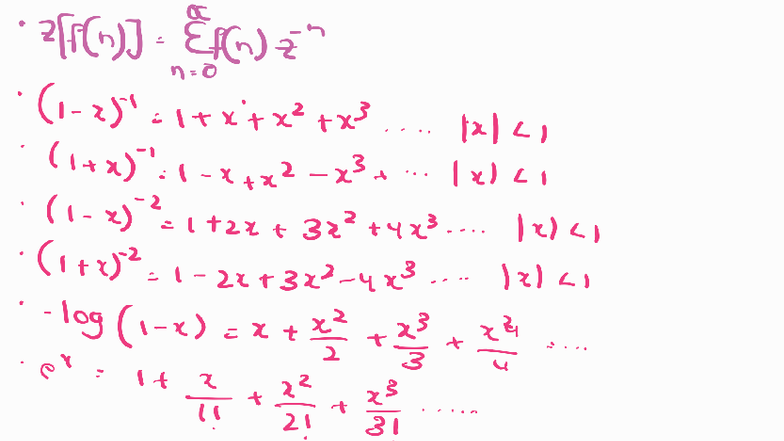 • z[f(n)] = ∞Σn=0 f(n) z⁻ⁿ
• (1-x)⁻¹ = 1 + x + x² + x³ ..... |x| < 1
• (1+x)⁻¹ = 1 - x + x² - x³ + ... |x| < 1
• (1-x)⁻² = 1 + 2x + 3x² + 4x³ .... |x| < 1
• (1+x)⁻² = 1 - 2x + 3x² - 4x³ .... |x| < 1
• -log(1-x) = x + x²/2 + x³/3 + x⁴/4 .....
• eˣ = 1 + x/1! + x²/2! + x³/3! .....